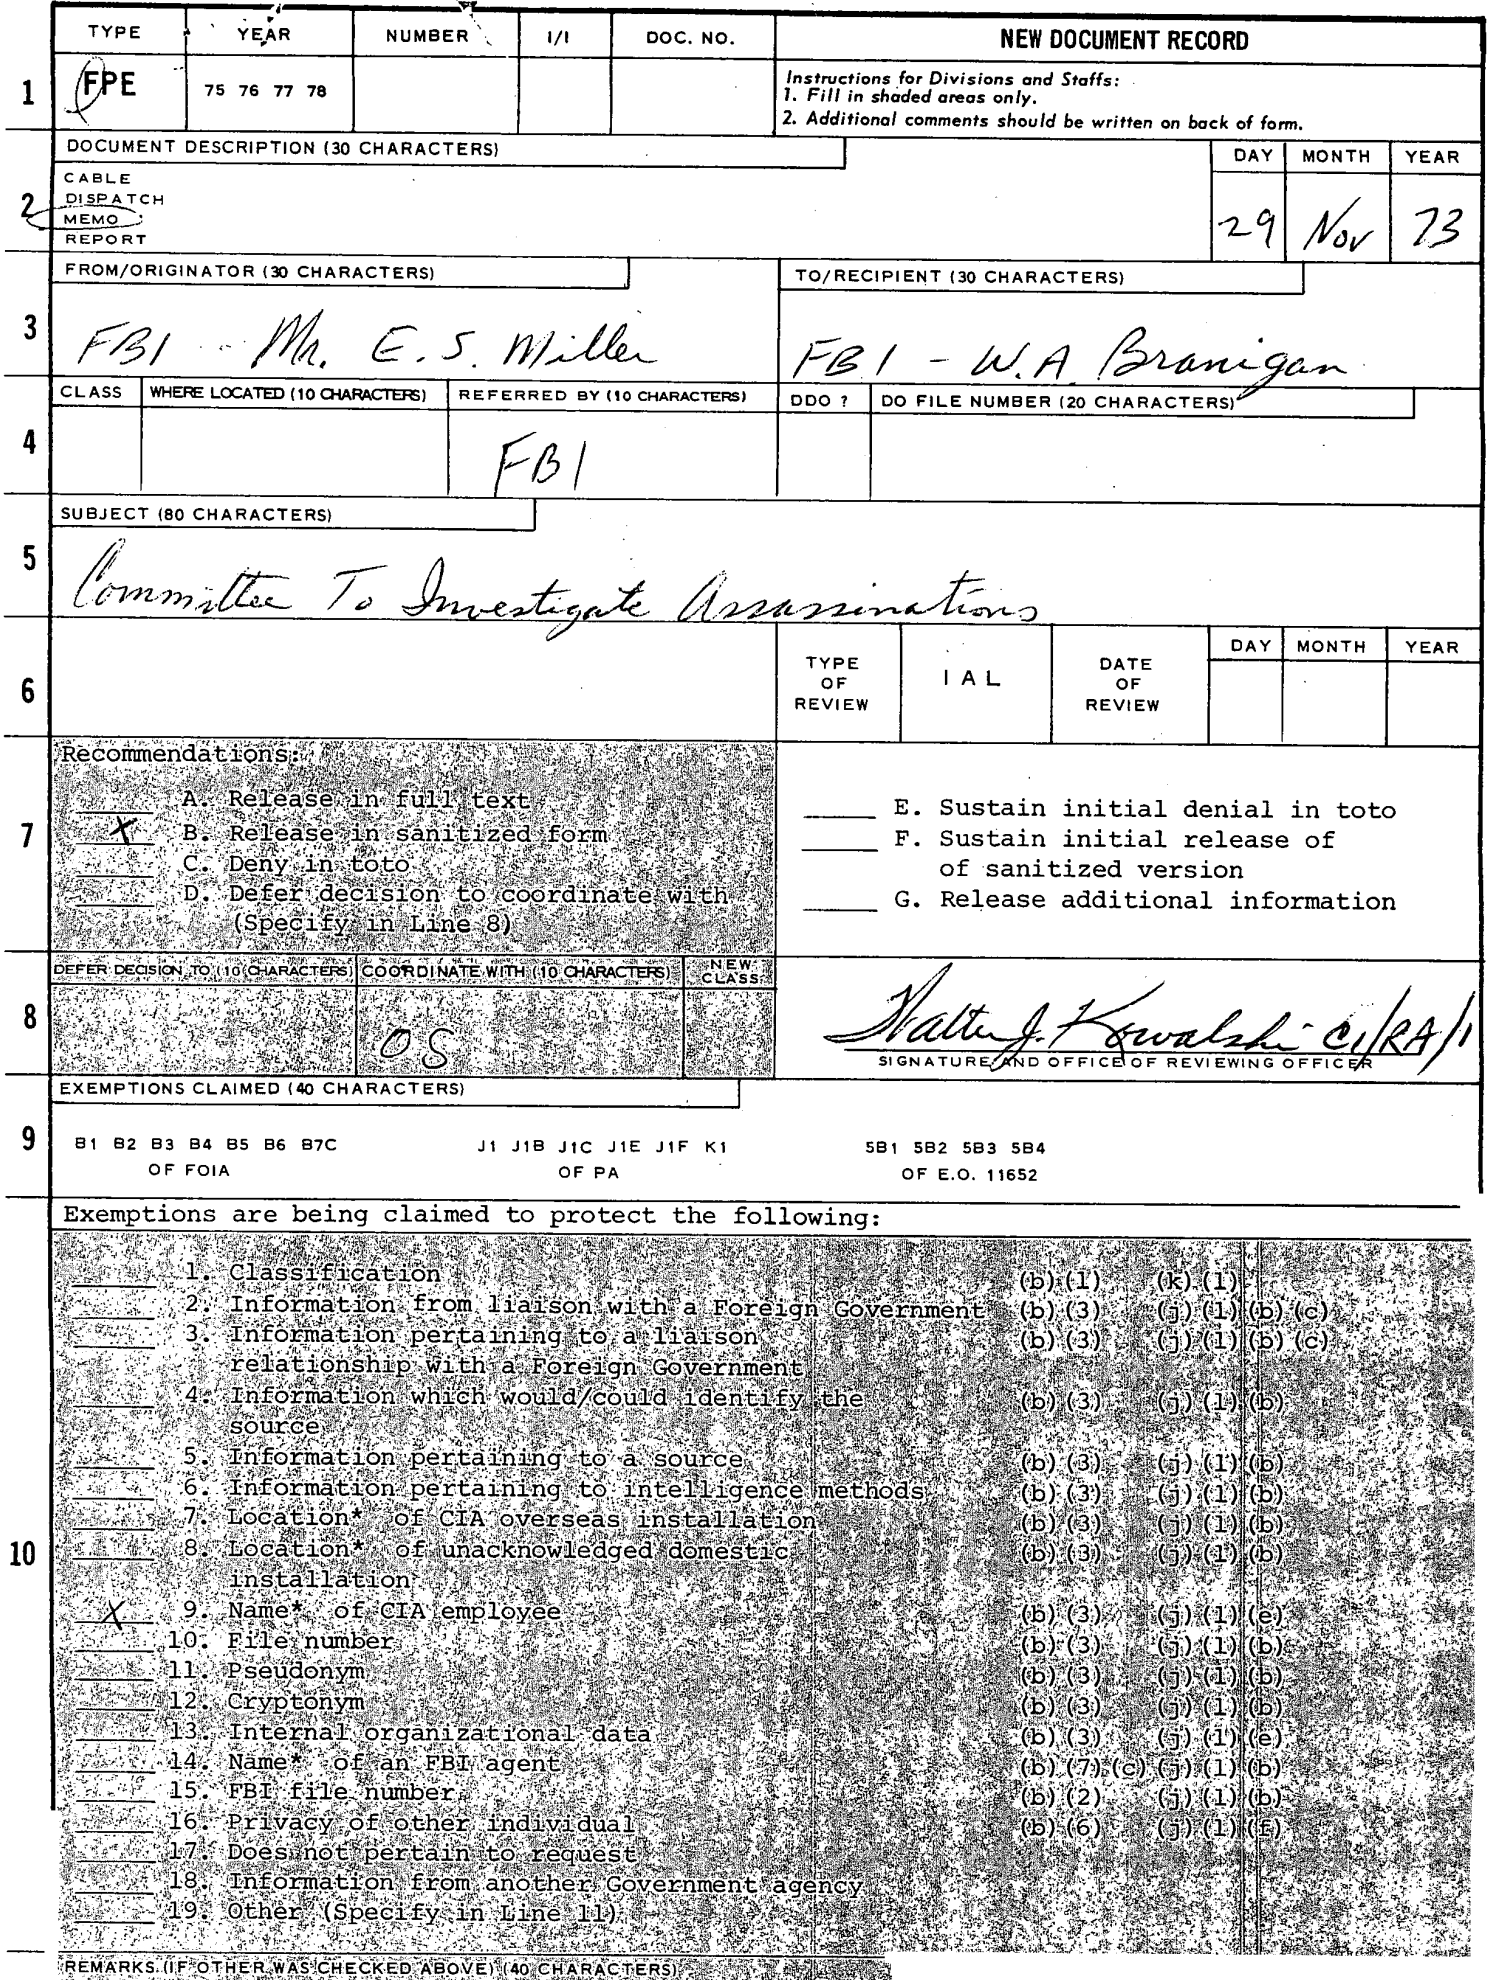 TYPE YEAR NUMBER 1/I DOC. NO. NEW DOCUMENT RECORD
1 FPE 75 76 77 78
Instructions for Divisions and Staffs:
1. Fill in shaded areas only.
2. Additional comments should be written on back of form.
DOCUMENT DESCRIPTION (30 CHARACTERS) DAY MONTH YEAR
2
CABLE
DISPATCH
MEMO
REPORT
29 Nov 73
FROM/ORIGINATOR (30 CHARACTERS) TO/RECIPIENT (30 CHARACTERS)
3 FBI - Mr. E. S. Miller FBI - W.A. Branigan
CLASS WHERE LOCATED (10 CHARACTERS) REFERRED BY (10 CHARACTERS) DDO ? DO FILE NUMBER (20 CHARACTERS)
4 FBI
SUBJECT (80 CHARACTERS)
5 Committee To Investigate Assassinations
6 TYPE OF REVIEW I A L DATE OF REVIEW DAY MONTH YEAR
Recommendations:
7
A. Release in full text
X B. Release in sanitized form
C. Deny in toto
D. Defer decision to coordinate with
(Specify in Line 8)
E. Sustain initial denial in toto
F. Sustain initial release of
of sanitized version
G. Release additional information
DEFER DECISION TO (10 CHARACTERS) COORDINATE WITH (10 CHARACTERS) NEW CLASS
8 OS Walter J. Kowalski CI/RA/1
SIGNATURE AND OFFICE OF REVIEWING OFFICER
EXEMPTIONS CLAIMED (40 CHARACTERS)
9 B1 B2 B3 B4 B5 B6 B7C J1 J1B J1C J1E J1F K1 5B1 5B2 5B3 5B4
OF FOIA OF PA OF E.O. 11652
Exemptions are being claimed to protect the following:
10
1. Classification (b)(1) (k)(1)
2. Information from liaison with a Foreign Government (b)(3) (j)(1)(b)(c)
3. Information pertaining to a liaison (b)(3) (j)(1)(b)(c)
relationship with a Foreign Government
4. Information which would/could identify the (b)(3) (j)(1)(b)
source
5. Information pertaining to a source (b)(3) (j)(1)(b)
6. Information pertaining to intelligence methods (b)(3) (j)(1)(b)
7. Location* of CIA overseas installation (b)(3) (j)(1)(b)
8. Location* of unacknowledged domestic (b)(3) (j)(1)(b)
installation
X 9. Name* of CIA employee (b)(3) (j)(1)(e)
10. File number (b)(3) (j)(1)(b)
11. Pseudonym (b)(3) (j)(1)(b)
12. Cryptonym (b)(3) (j)(1)(b)
13. Internal organizational data (b)(3) (j)(1)(e)
14. Name* of an FBI agent (b)(7)(c) (j)(1)(b)
15. FBI file number (b)(2) (j)(1)(b)
16. Privacy of other individual (b)(6) (j)(1)(f)
17. Does not pertain to request
18. Information from another Government agency
19. Other (Specify in Line 11)
REMARKS (IF OTHER WAS CHECKED ABOVE) (40 CHARACTERS)